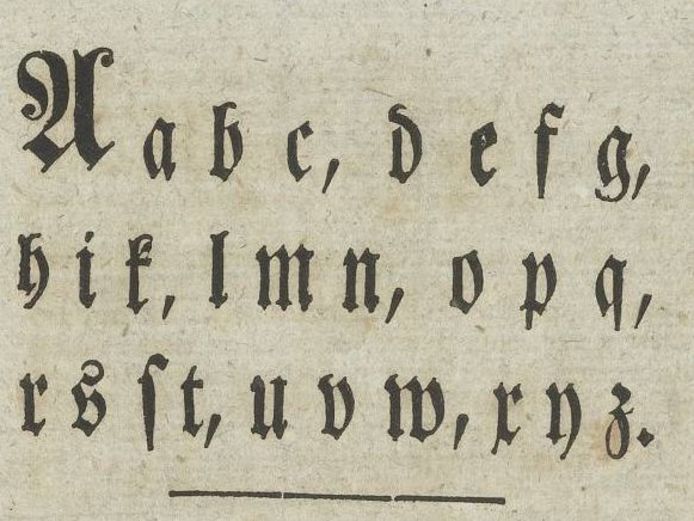 A a b c, d e f g,
h i k, l m n, o p q,
r s ſ t, u v w, x y z.